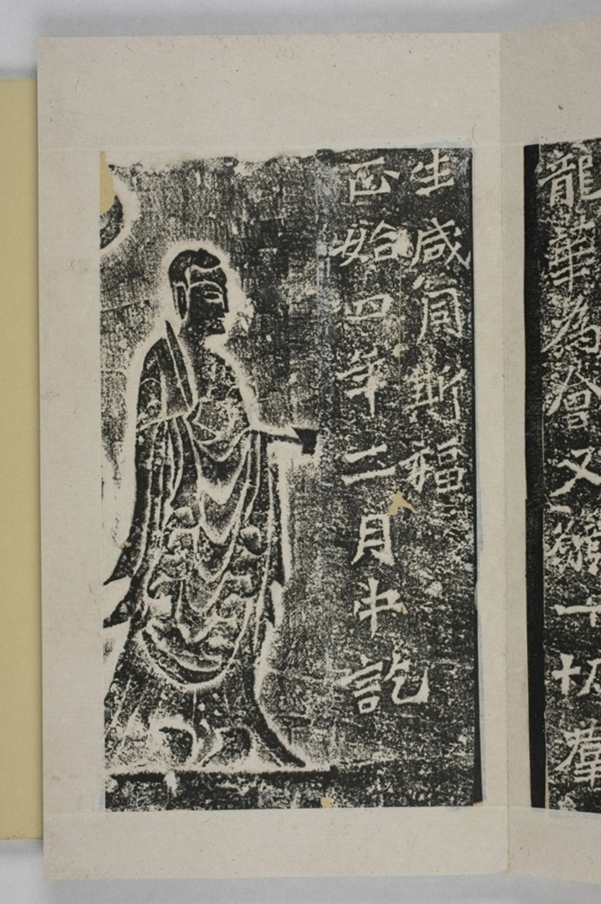 龍華為會又願一切羣
生咸同斯福
正始四年二月中訖